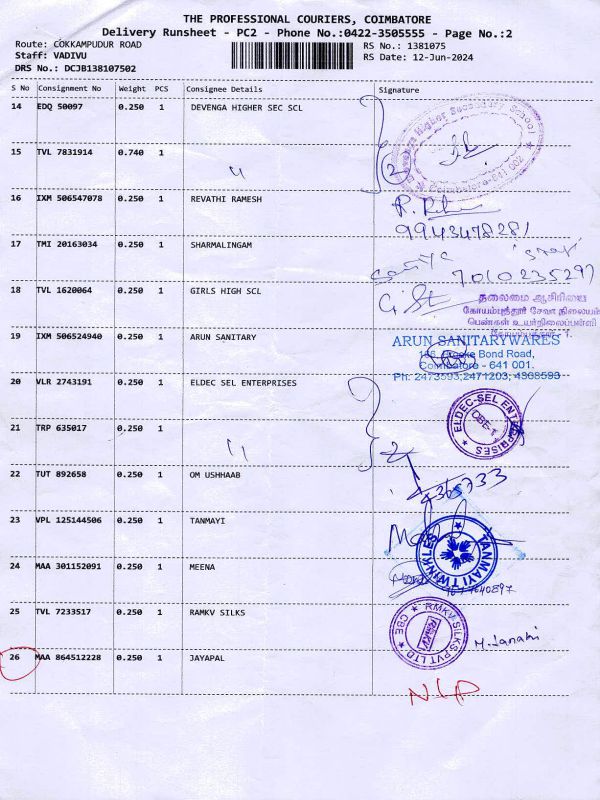 THE PROFESSIONAL COURIERS, COIMBATORE
Delivery Runsheet - PC2 - Phone No.:0422-3505555 - Page No.:2
Route: COKKAMPUDUR ROAD
RS No.: 1381075
Staff: VADIVU
RS Date: 12-Jun-2024
DRS No.: DCJB138107502
S No Consignment No Weight PCS Consignee Details Signature
14 EDQ 50097 0.250 1 DEVENGA HIGHER SEC SCL
Higher Secondary School
Coimbatore-641 002
15 TVL 7831914 0.740 1 "
2
16 IXM 506547078 0.250 1 REVATHI RAMESH
9943478281
17 TMI 20163034 0.250 1 SHARMALINGAM
7010235297
18 TVL 1620064 0.250 1 GIRLS HIGH SCL
தலைமை ஆசிரியை
கோயம்புத்தூர் சேவா நிலையம்
பெண்கள் உயர்நிலைப்பள்ளி
19 IXM 506524940 0.250 1 ARUN SANITARY
ARUN SANITARYWARES
Bond Road,
Coimbatore - 641 001.
Ph: 2473593,2471203, 4368593
20 VLR 2743191 0.250 1 ELDEC SEL ENTERPRISES
ELDEC-SEL ENTERPRISES
CBE-1
21 TRP 635017 0.250 1 "
2
22 TUT 892658 0.250 1 OM USHHAAB
23 VPL 125144506 0.250 1 TANMAYI
TANMAYI TWINKLES
CBE
24 MAA 301152091 0.250 1 MEENA
25 TVL 7233517 0.250 1 RAMKV SILKS
RMKV SILKS PVT LTD
CBE
M. Janaki
26 MAA 864512228 0.250 1 JAYAPAL
NLP